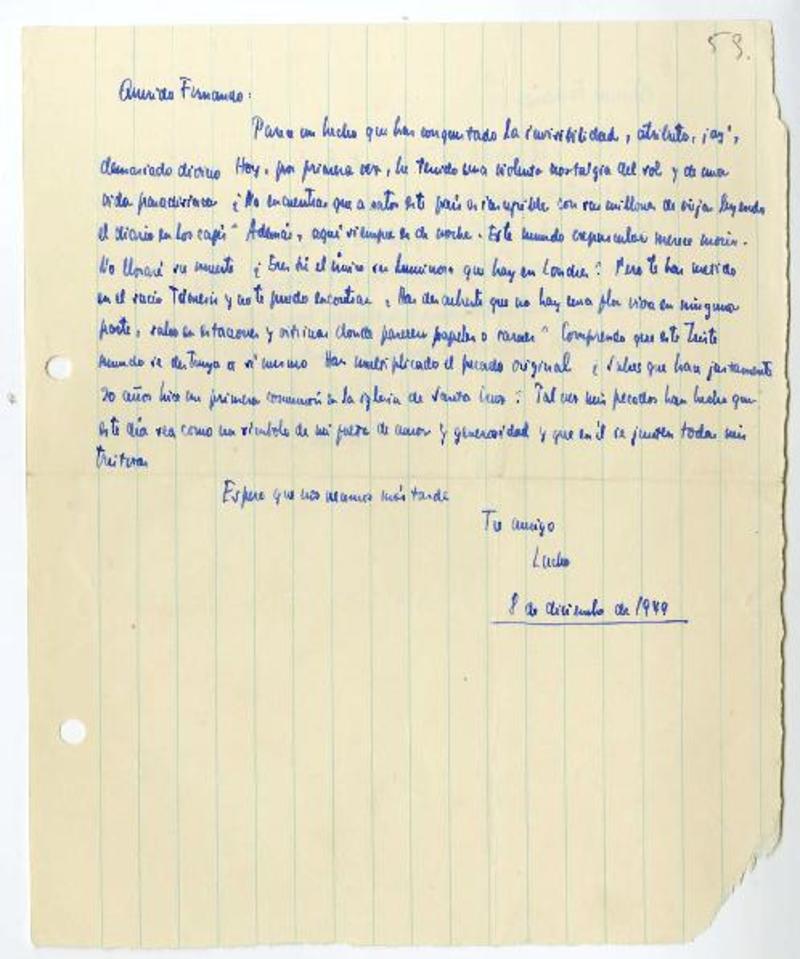 59.
Querido Fernando:
Parece un hecho que has conquistado la invisibilidad, atributo, ¡ay!,
demasiado divino Hoy, por primera vez, he tenido una violenta nostalgia del sol y de una
vida paradisiaca ¿No encuentras que este país es increíble con sus millones de viejas leyendo
el diario en los cafés? Además, aquí siempre es de noche. Este mundo crepuscular merece morir.
No lloraré su muerte ¿Eres tú el único ser luminoso que hay en Londres? Pero te has metido
en el sucio Támesis y no te puedo encontrar. ¿Has descubierto que no hay una flor viva en ninguna
parte, salvo en estaciones y vitrinas donde parecen papeles o carnes? Comprendo que este triste
mundo se destruya a sí mismo Han multiplicado el pecado original ¿Sabes que hace justamente
20 años hice mi primera comunión en la iglesia de Santa Cruz? Tal vez mis pecados han hecho que
este día sea como un símbolo de mi falta de amor y generosidad y que en él se junten todas mis
tristezas
Espero que nos veamos más tarde
Tu amigo
Lucho
8 de diciembre de 1949